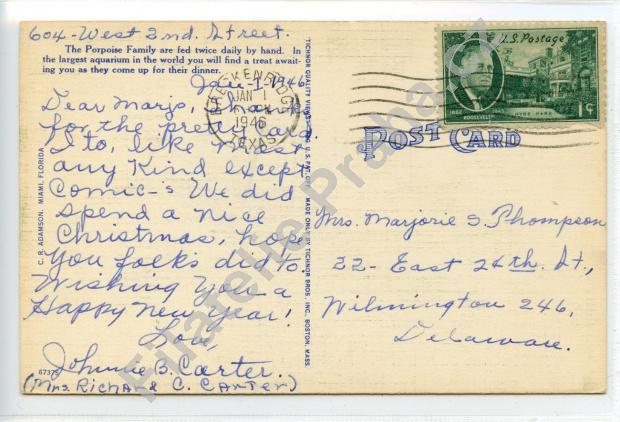 604-West 2nd. Street.
The Porpoise Family are fed twice daily by hand. In
the largest aquarium in the world you will find a treat await-
ing you as they come up for their dinner.
Jan-1-1946
Dear Marjo,
for the pretty card.
I to, like most
any Kind except
Comic-s We did
spend a nice
Christmas, hope
you folks did to
Wishing you a
Happy New Year!
Love
Johnnie B. Carter.
(Mrs. Richard C. Carter)
67375
C. R. ADAMSON, MIAMI, FLORIDA
BRECKENRIDGE
JAN 1
1946
TEXAS
TICHNOR QUALITY VIEWS
MADE ONLY BY TICHNOR BROS. INC. BOSTON, MASS.
U.S. Postage
1882
ROOSEVELT
HYDE PARK
1¢
POST CARD
Mrs. Marjorie S. Thompson
22-East 24th. St.,
Wilmington 246,
Delaware.
Filatelie Praha